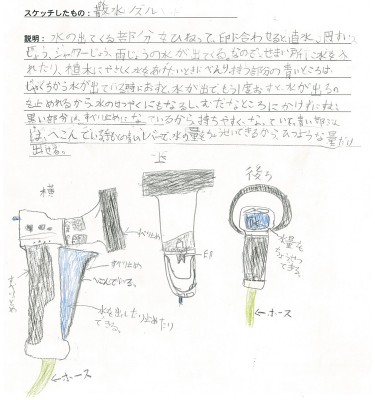 スケッチしたもの: 散水ノズル
説明: 水の出てくる部分をひねって印に合わせると直水、
じょう、シャワーじょう、雨じょうの水が出てくる。なので、せまい所に水を入
れたり、植木にやさしく水をあげたいときにべんり。持つ部分の青いところは
じゃぐちから水が出ている時におすと、水が出て、もう1度おすと、水が出るの
を止めれるから水のせつやくにもなるし、むだなところにかけずにすむ。
黒い部分は、すべり止めになっているから、持ちやすくなっている。青い部分
は、へこんでいる
出せる。
横
上
後ろ
すべり止め
すべり止め
すべり止め
へこんでいる。
水を出したり止めたり
できる。
←ホース
印
水量を
ちょうせつ
できる。
←ホース